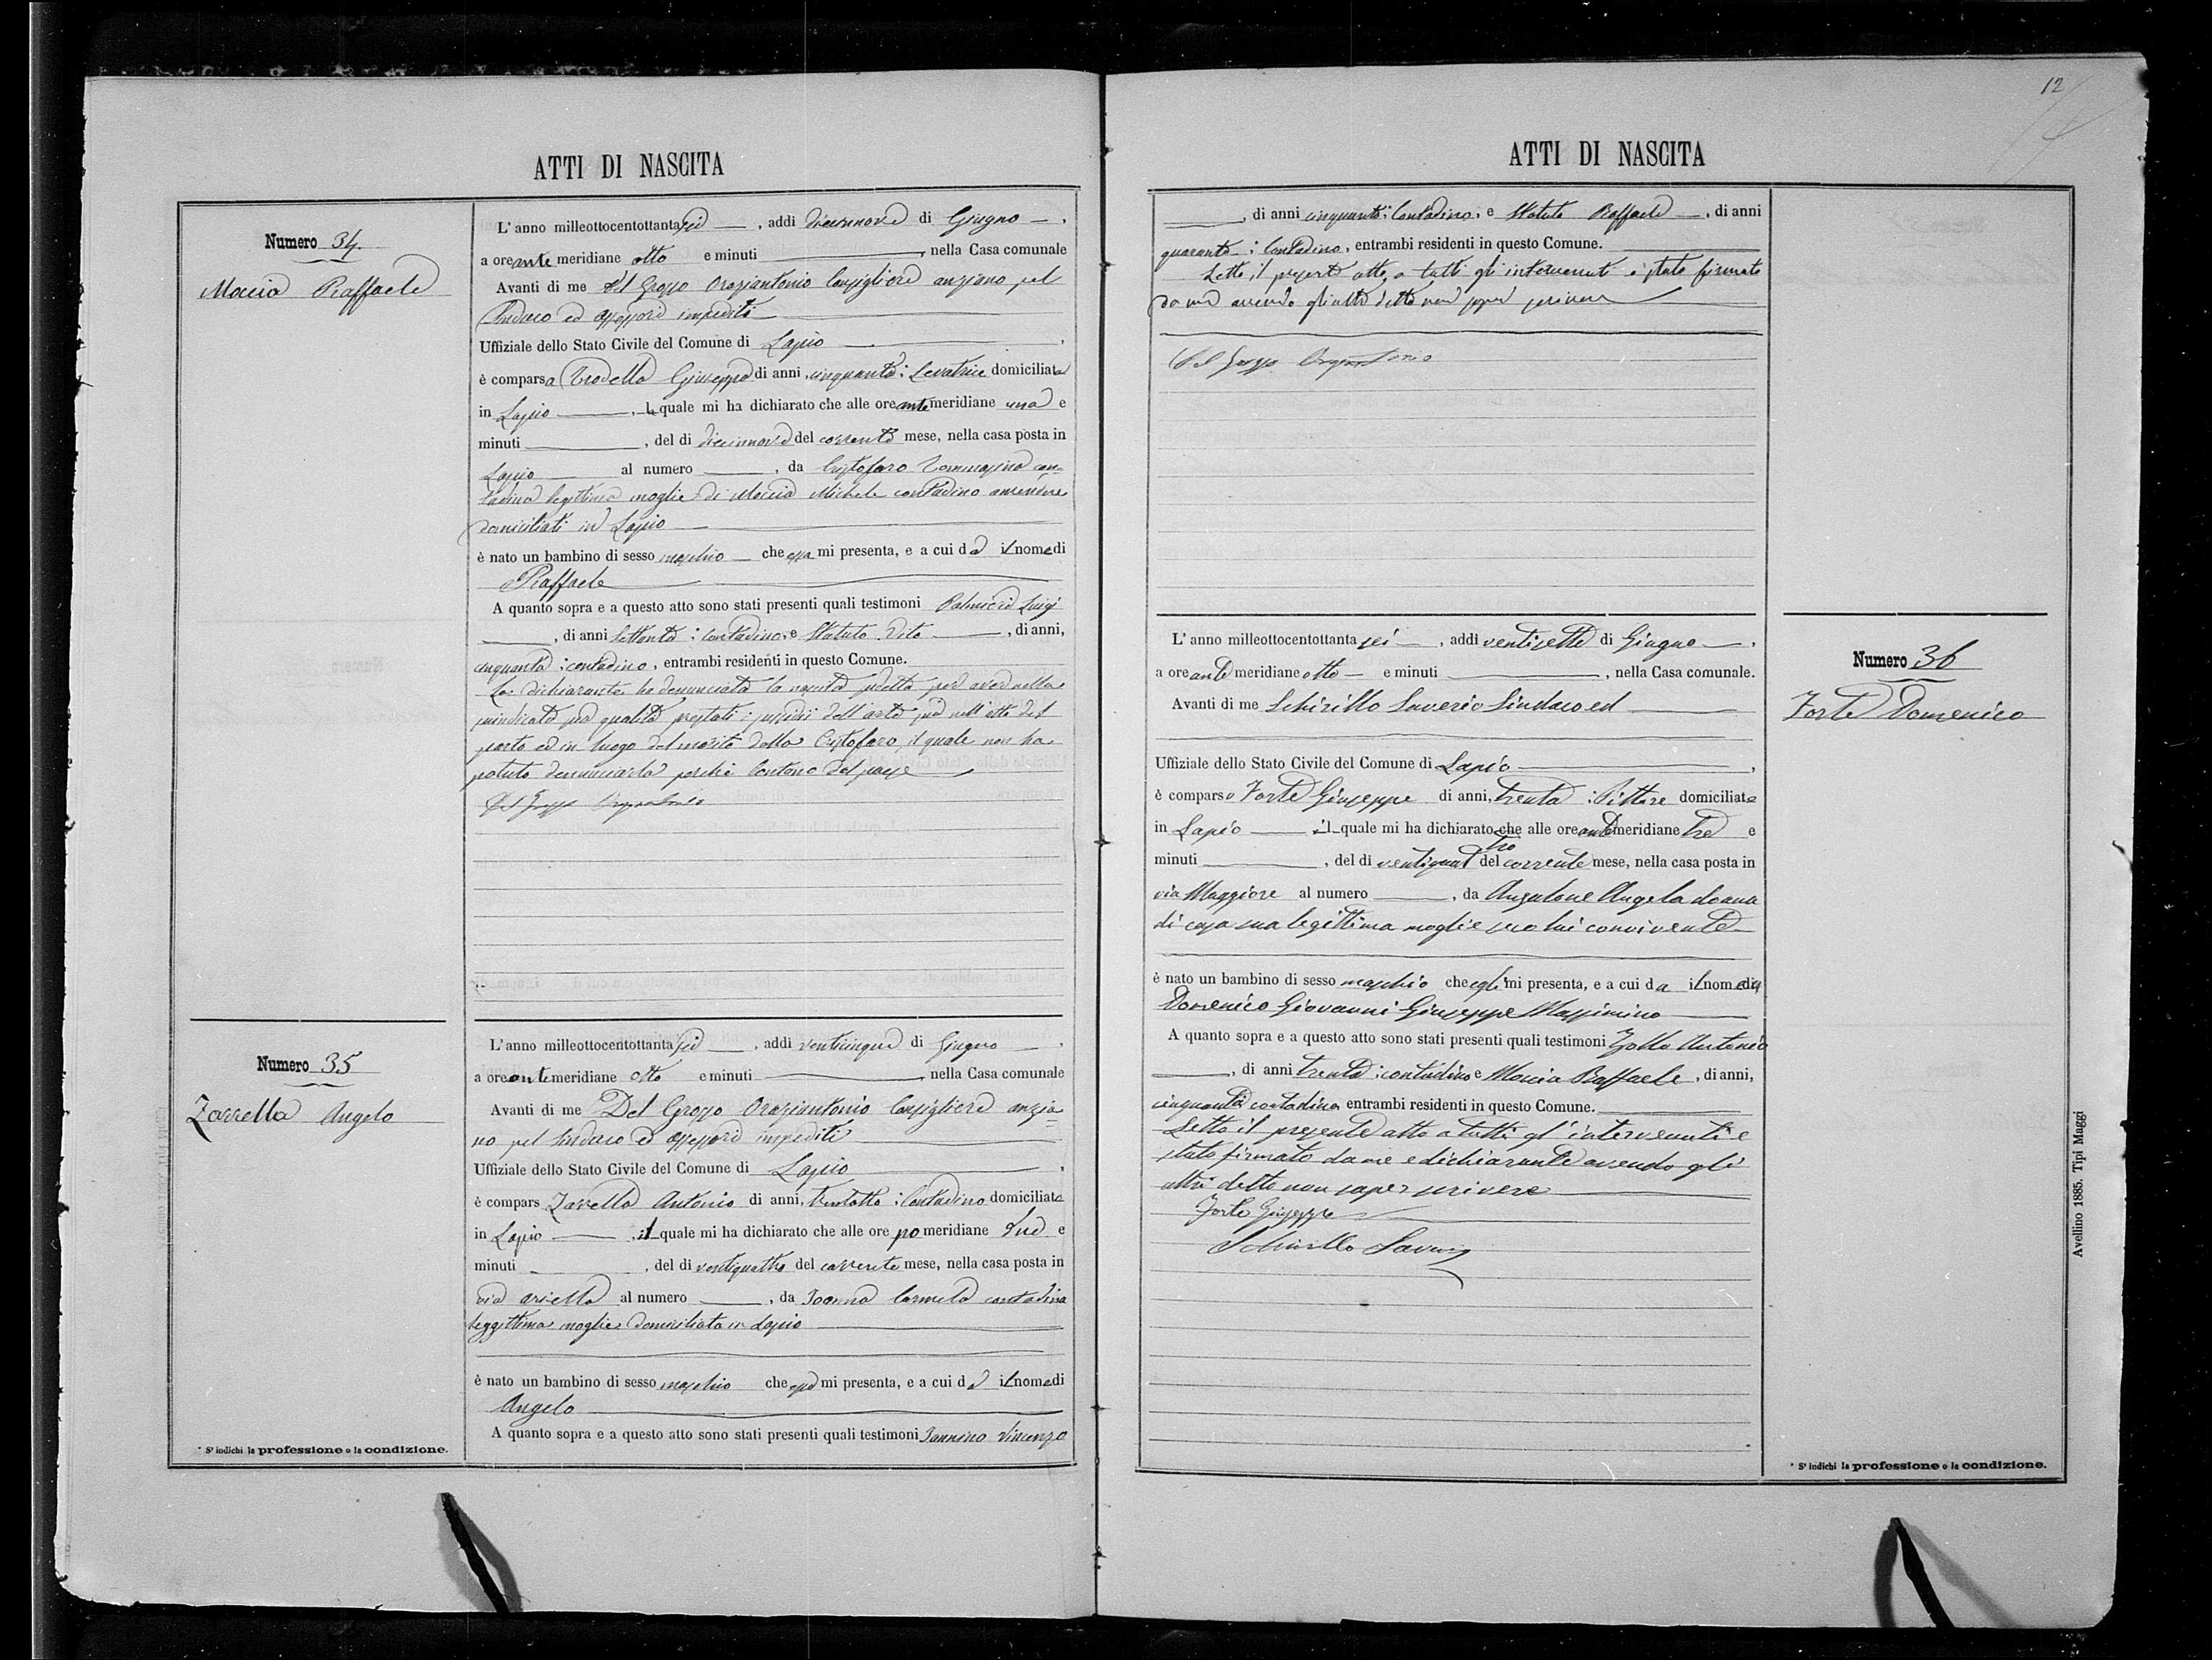 ATTI DI NASCITA
Numero 34.
Moccia Raffaele
L'anno milleottocentottantasei, addì diecinnove di Giugno,
a ore ante meridiane otto e minuti, nella Casa comunale
Avanti di me Del Grosso Oraziantonio Consigliere anziano pel
Sindaco ed assessori impediti
Uffiziale dello Stato Civile del Comune di Lapio,
è comparsa Trodella Giuseppa di anni cinquanta: Levatrice domiciliata
in Lapio, la quale mi ha dichiarato che alle ore ante meridiane una e
minuti, del di diecinnove del corrente mese, nella casa posta in
Lapio al numero, da Cristofaro Tommasina con=
tadina legittima moglie di Moccia Michele contadino amendue
domiciliati in Lapio
è nato un bambino di sesso maschio che essa mi presenta, e a cui dà il nome di
Raffaele
A quanto sopra e a questo atto sono stati presenti quali testimoni Palmieri Luigi
, di anni settanta: Contadino, e Statuto Vito, di anni,
cinquanta: contadino, entrambi residenti in questo Comune.
La dichiarante ha denunciata la nascita per aver nella
qualità prestati i sussidii dell'arte sua nell'atto del
parto ed in luogo del marito della Cristofaro, il quale non ha
potuto denunciarla perchè lontano dal paese
Del Grosso Oraziantonio
Numero 35
Zarrella Angelo
L'anno milleottocentottantasei, addì venticinque di Giugno,
a ore antemeridiane otto e minuti, nella Casa comunale
Avanti di me Del Grosso Oraziantonio Consigliere anzia=
no pel Sindaco ed assessori impediti
Uffiziale dello Stato Civile del Comune di Lapio,
è compars Zarrella Antonio di anni, trentotto: Contadino domiciliato
in Lapio, il quale mi ha dichiarato che alle ore pomeridiane due e
minuti, del di ventiquattro del corrente mese, nella casa posta in
via arsella al numero, da Ioanna Carmela contadina
leggittima moglie domiciliata in Lapio
è nato un bambino di sesso maschio che esso mi presenta, e a cui dà il nome di
Angelo
A quanto sopra e a questo atto sono stati presenti quali testimoni Iannino Vincenzo
* S' indichi la professione o la condizione.
12
ATTI DI NASCITA
, di anni cinquanta: Contadino, e Statuto Raffaele, di anni
quaranta: Contadino, entrambi residenti in questo Comune.
Letto il presente atto a tutti gli intervenuti è stato firmato
da me avendo gli altri detto non saper scrivere
Del Grosso Oraziantonio
Numero 36
Forte Domenico
L'anno milleottocentottantasei, addì ventisette di Giugno,
a ore ante meridiane otto e minuti, nella Casa comunale.
Avanti di me Schirillo Saverio Sindaco ed
Uffiziale dello Stato Civile del Comune di Lapio,
è comparso Forte Giuseppe di anni, trenta: Pittore domiciliato
in Lapio, il quale mi ha dichiarato che alle ore antemeridiane tre e
minuti, del di ventiquattro del corrente mese, nella casa posta in
via Maggiore al numero, da Anzalone Angela donna
di casa sua legittima moglie seco lui convivente
è nato un bambino di sesso maschio che egli mi presenta, e a cui da il nome di
Domenico Giovanni Giuseppe Massimino
A quanto sopra e a questo atto sono stati presenti quali testimoni Zollo Antonio
, di anni trenta: contadino e Moccia Raffaele, di anni,
cinquanta contadino entrambi residenti in questo Comune.
Letto il presente atto a tutti gl'intervenuti è
stato firmato da me e dichiarante avendo gli
altri detto non saper scrivere
Forte Giuseppe
Schirillo Saverio
* S' indichi la professione o la condizione.
Avellino 1885. Tipi Maggi